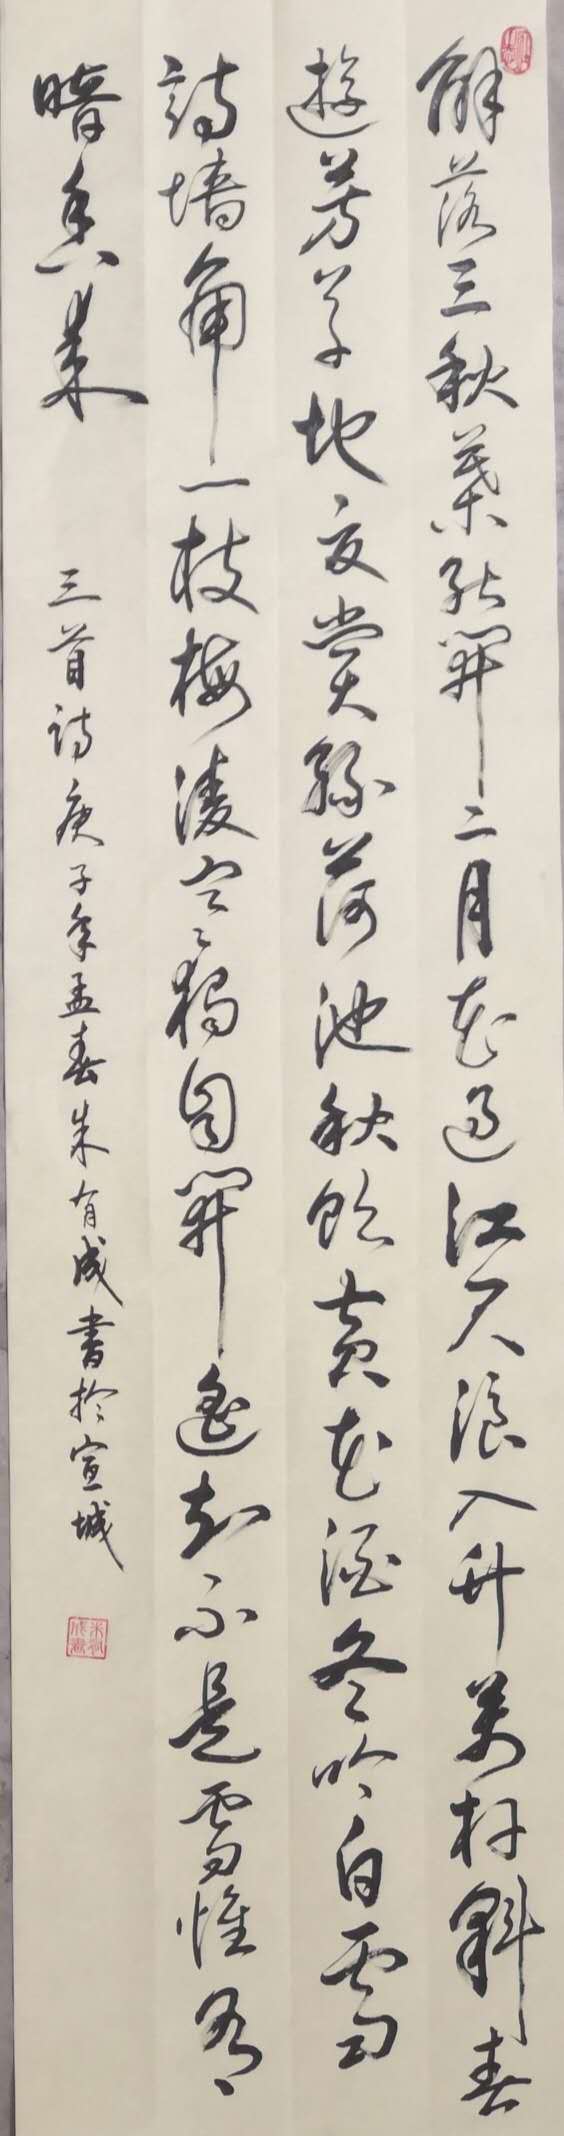 解落三秋葉能開二月花過江尺浪入竹萬杆斜春
遊芳草地夏賞綠荷池秋飲黃花酒冬吟白雪
詩墙角一枝梅凌寒獨自開遙知不是雪惟有
暗香來
三首詩庚子年孟春朱有成書於宣城